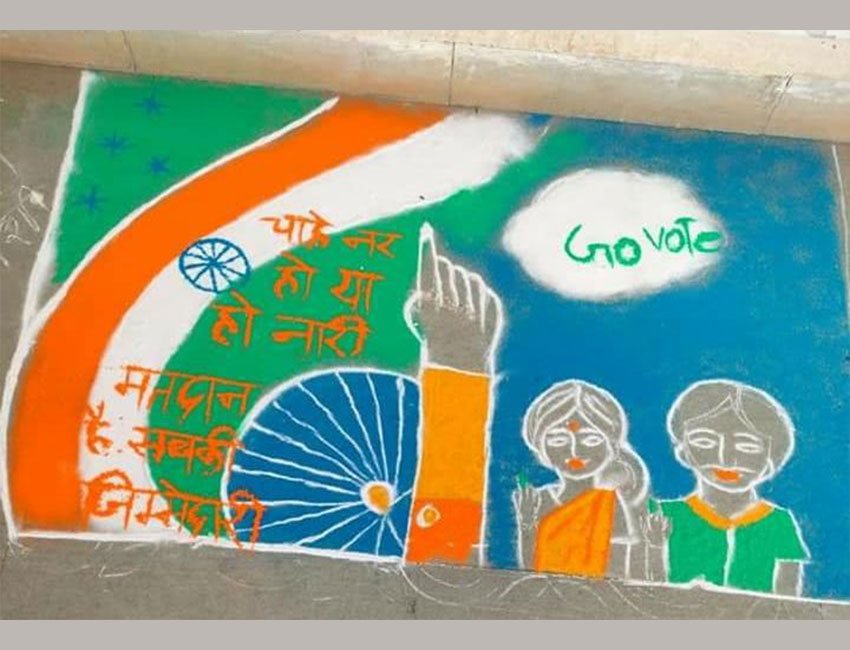 चाहे नर
हो या
हो नारी
मतदान
है सबकी
जिम्मेदारी
Go VOTe